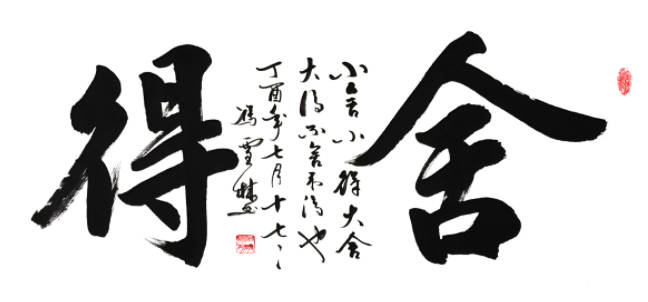 舍
小舍小得大舍
大得不舍不得也
丁酉年七月十七
馮雪
得